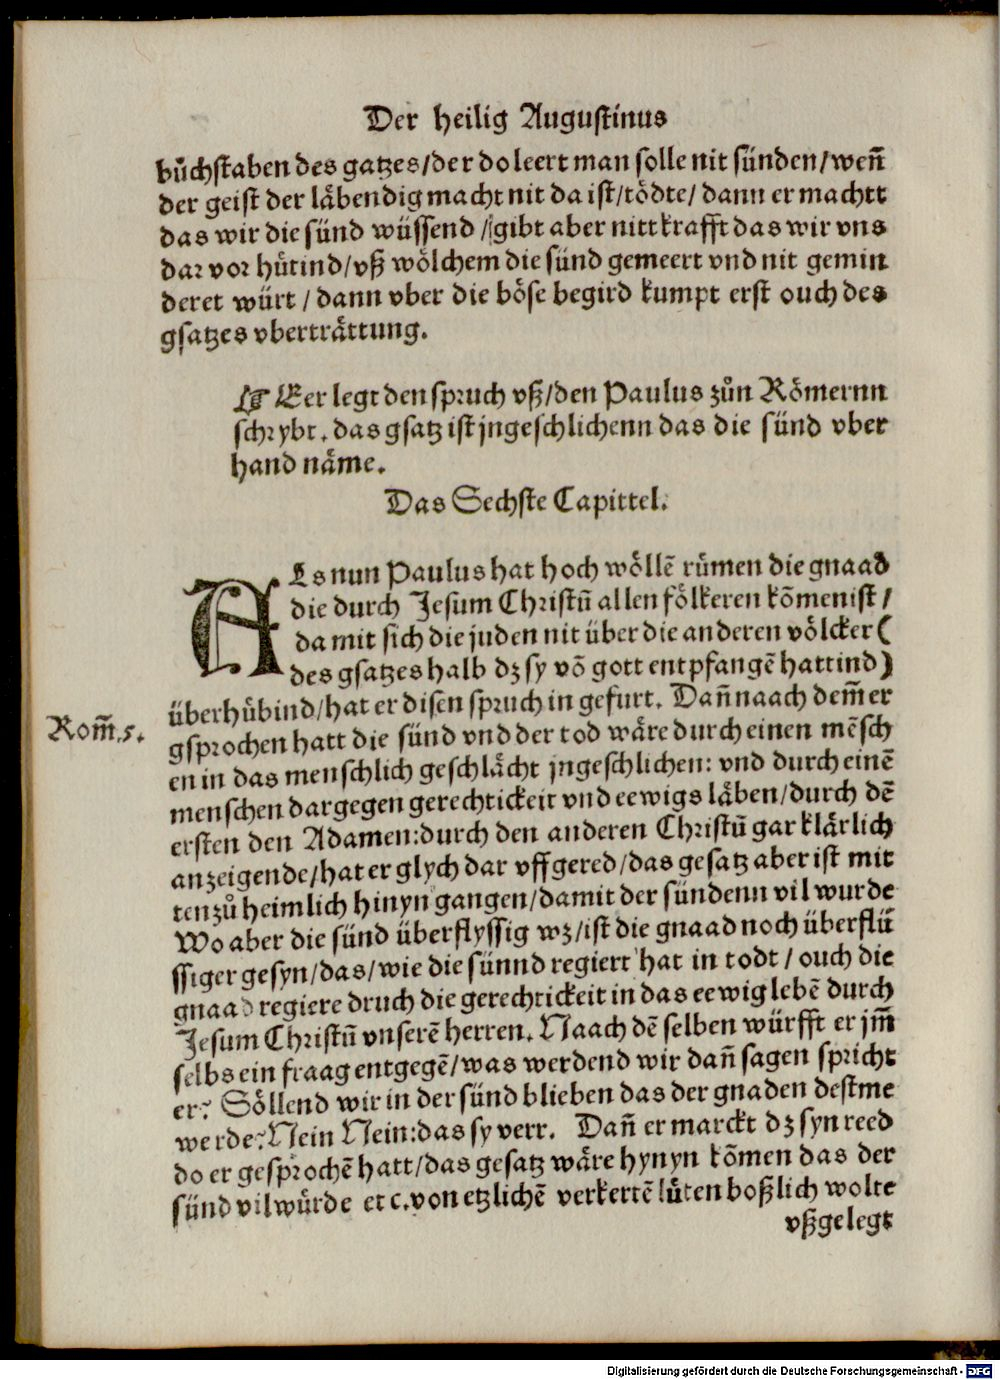 Der heilig Augustinus
bůchstaben des gatzes/der do leert man solle nit sünden/wen̄
der geist der läbendig macht nit da ist/tödte/dann er machtt
das wir die sünd wüssend/gibt aber nitt krafft das wir vns
dar vor hütind/vß wölchem die sünd gemeert vnd nit gemin
deret würt/dann vber die böse begird kumpt erst ouch des
gsatzes vberträttung.
☞ Er legt den spruch vß/den Paulus zůn Römernn
schrybt. das gsatz ist jngeschlichenn das die sünd vber
hand näme.
Das Sechste Capittel.
ALs nun Paulus hat hoch wöllē rümen die gnaad
die durch Jesum Christū allen fölkeren kōmen ist/
da mit sich die juden nit über die anderen völcker (
des gsatzes halb dz sy vō gott entpfangē hattind)
überhübind/hat er disen spruch in gefurt. Dan̄ naach dem̄ er
Rom̄.5.
gsprochen hatt die sünd vnd der tod wäre durch einen mēsch
en in das menschlich geschlächt jngeschlichen: vnd durch einē
menschen dargegen gerechtickeit vnd eewigs läben/durch dē
ersten den Adamen:durch den anderen Christū gar klärlich
anzeigende/hat er glych dar vff gered/das gesatz aber ist mit
ten zů heimlich hinyn gangen/damit der sündenn vil wurde
Wo aber die sünd überflyssig wz/ist die gnaad noch überflü
ssiger gesyn/das/wie die sünnd regiert hat in todt/ouch die
gnaad regiere druch die gerechtickeit in das eewig lebē durch
Jesum Christū vnserē herren. Naach dē selben würfft er jm̄
selbs ein fraag entgegē/was werdend wir dan̄ sagen spricht
er? Söllend wir in der sünd blieben das der gnaden destme
werde? Nein Nein:das sy verr. Dan̄ er marckt dz syn reed
do er gesprochē hatt/das gesatz wäre hynyn kōmen das der
sünd vil würde etc. von etzlichē verkertē lüten boßlich wolte
vßgelegt
Digitalisierung gefördert durch die Deutsche Forschungsgemeinschaft - DFG